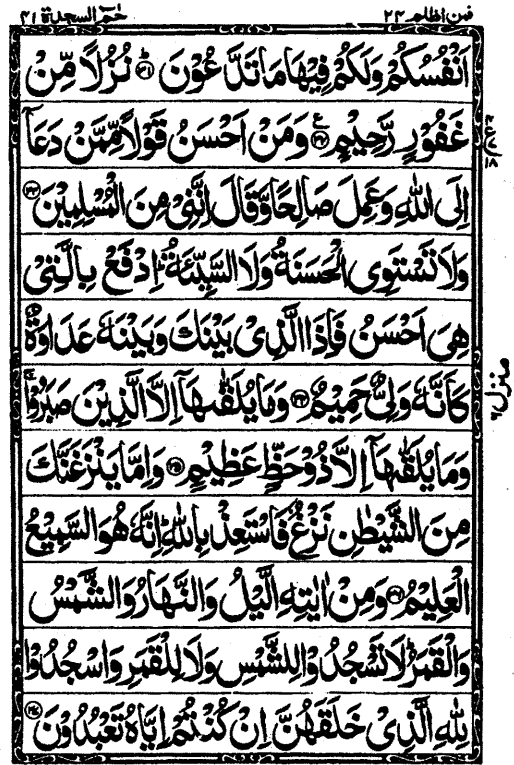 فمن اظلم ٢٤
حٰم السجدة ٤١
اَنْفُسُكُمْ وَلَكُمْ فِيْهَا مَا تَدَّعُوْنَ ؕ﴿۳۱﴾ نُزُلًا مِّنْ
غَفُوْرٍ رَّحِيْمٍ ﴿۳۲﴾ وَمَنْ اَحْسَنُ قَوْلًا مِّمَّنْ دَعَاۤ
اِلَى اللّٰهِ وَعَمِلَ صَالِحًا وَّقَالَ اِنَّنِيْ مِنَ الْمُسْلِمِيْنَ ﴿۳۳﴾
وَلَا تَسْتَوِي الْحَسَنَةُ وَلَا السَّيِّئَةُ ؕ اِدْفَعْ بِالَّتِيْ
هِيَ اَحْسَنُ فَاِذَا الَّذِيْ بَيْنَكَ وَبَيْنَهٗ عَدَاوَةٌ
كَاَنَّهٗ وَلِيٌّ حَمِيْمٌ ﴿۳۴﴾ وَمَا يُلَقّٰىهَاۤ اِلَّا الَّذِيْنَ صَبَرُوْا ۚ
وَمَا يُلَقّٰىهَاۤ اِلَّا ذُوْ حَظٍّ عَظِيْمٍ ﴿۳۵﴾ وَاِمَّا يَنْزَغَنَّكَ
مِنَ الشَّيْطٰنِ نَزْغٌ فَاسْتَعِذْ بِاللّٰهِ ؕ اِنَّهٗ هُوَ السَّمِيْعُ
الْعَلِيْمُ ﴿۳۶﴾ وَمِنْ اٰيٰتِهِ الَّيْلُ وَالنَّهَارُ وَالشَّمْسُ
وَالْقَمَرُ ؕ لَا تَسْجُدُوْا لِلشَّمْسِ وَلَا لِلْقَمَرِ وَاسْجُدُوْا
لِلّٰهِ الَّذِيْ خَلَقَهُنَّ اِنْ كُنْتُمْ اِيَّاهُ تَعْبُدُوْنَ ﴿۳۷﴾
منزل ٦